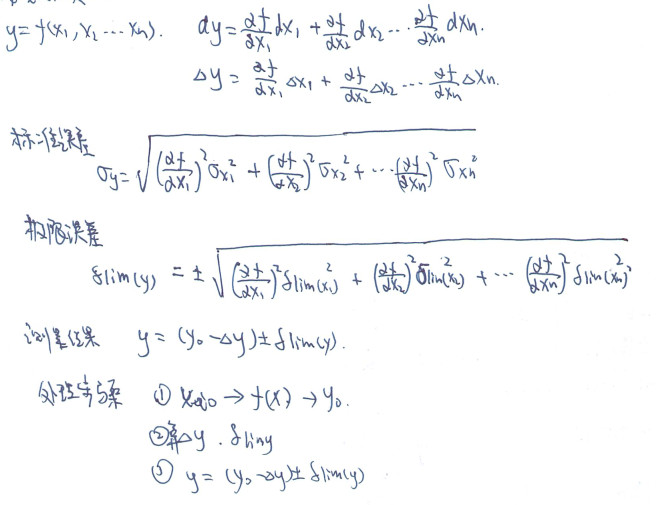 y=f(x₁, x₂ ··· xₙ). dy=∂f/∂x₁ dx₁ + ∂f/∂x₂ dx₂ ··· ∂f/∂xₙ dxₙ.
Δy = ∂f/∂x₁ Δx₁ + ∂f/∂x₂ Δx₂ ··· ∂f/∂xₙ Δxₙ.
标准误差
σy=√((∂f/∂x₁)²σx₁² + (∂f/∂x₂)²σx₂² + ···(∂f/∂xₙ)²σxₙ²)
极限误差
δlim(y) = ± √((∂f/∂x₁)²δlim(x₁)² + (∂f/∂x₂)²δlim(x₂)² + ··· (∂f/∂xₙ)²δlim(xₙ)²)
测量结果 y = (y₀-Δy)±δlim(y).
处理步骤 ① → f(x) → y₀.
②算Δy . δlimy
③ y = (y₀-Δy)±δlim(y)